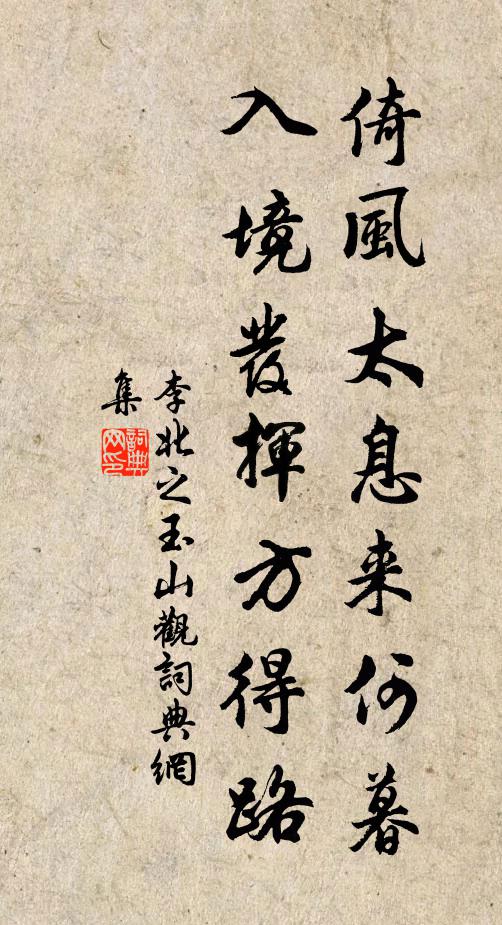 倚風太息来何暮
入境發揮方得路
李壯之玉山觀詞典網
集
詞典网印